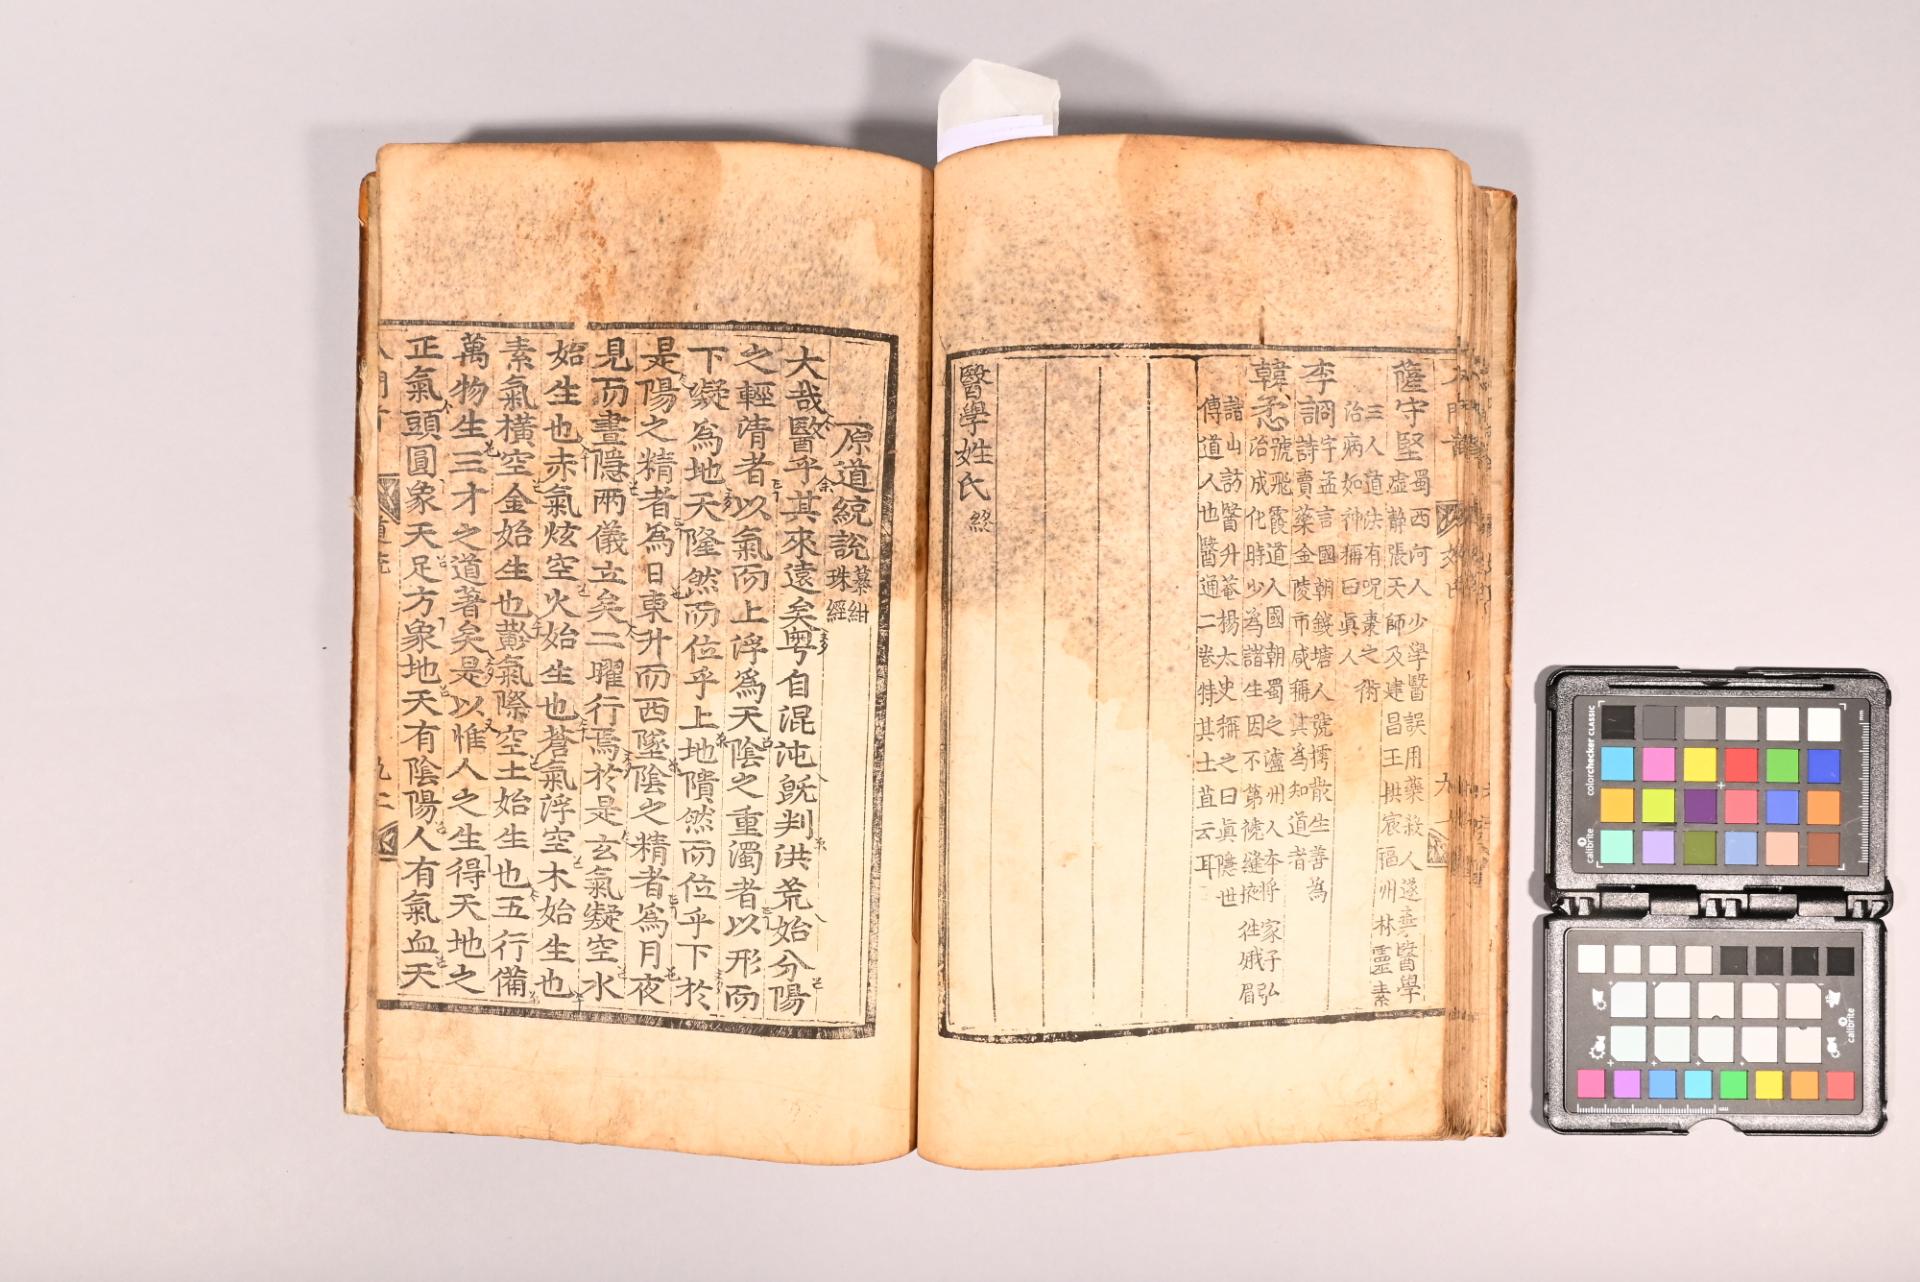 薩守堅
蜀西河人少學醫誤用藥殺人遂棄醫學
虛靜張天師及建昌王拱宸福州林靈素
三人道法有呪棗之術
治病如神稱曰眞人
李詗
字孟言國朝錢塘人號樗散生善為
詩賣藥金陵市咸稱其為知道者
韓𢘅
號飛霞道人國朝蜀之瀘州人本將家子弘
治成化時少為諸生因不第褫縫掖徃峨眉
諸山訪醫升菴楊太史稱之曰眞隱世
傳道人也醫通二卷特其土苴云耳
醫學姓氏終
原道統說
纂紺
珠經
大哉醫乎其來遠矣粤自混沌旣判洪荒始分陽
之輕清者以氣而上浮爲天陰之重濁者以形而
下凝爲地天隆然而位乎上地隤然而位乎下於
是陽之精者為日東升而西墜陰之精者為月夜
見而晝隱兩儀立矣二曜行焉於是玄氣凝空水
始生也赤氣炫空火始生也蒼氣浮空木始生也
素氣橫空金始生也黅氣際空土始生也五行備
萬物生三才之道著矣是以惟人之生得天地之
正氣頭圓象天足方象地天有陰陽人有氣血天